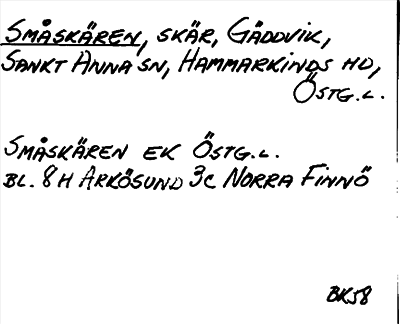 Småskären, skär, Gåddvik,
Sankt Anna sn, Hammarkinds hd,
Östg.l.
Småskären EK Östg.l.
bl. 8H Arkösund 3c Norra Finnö
BK58